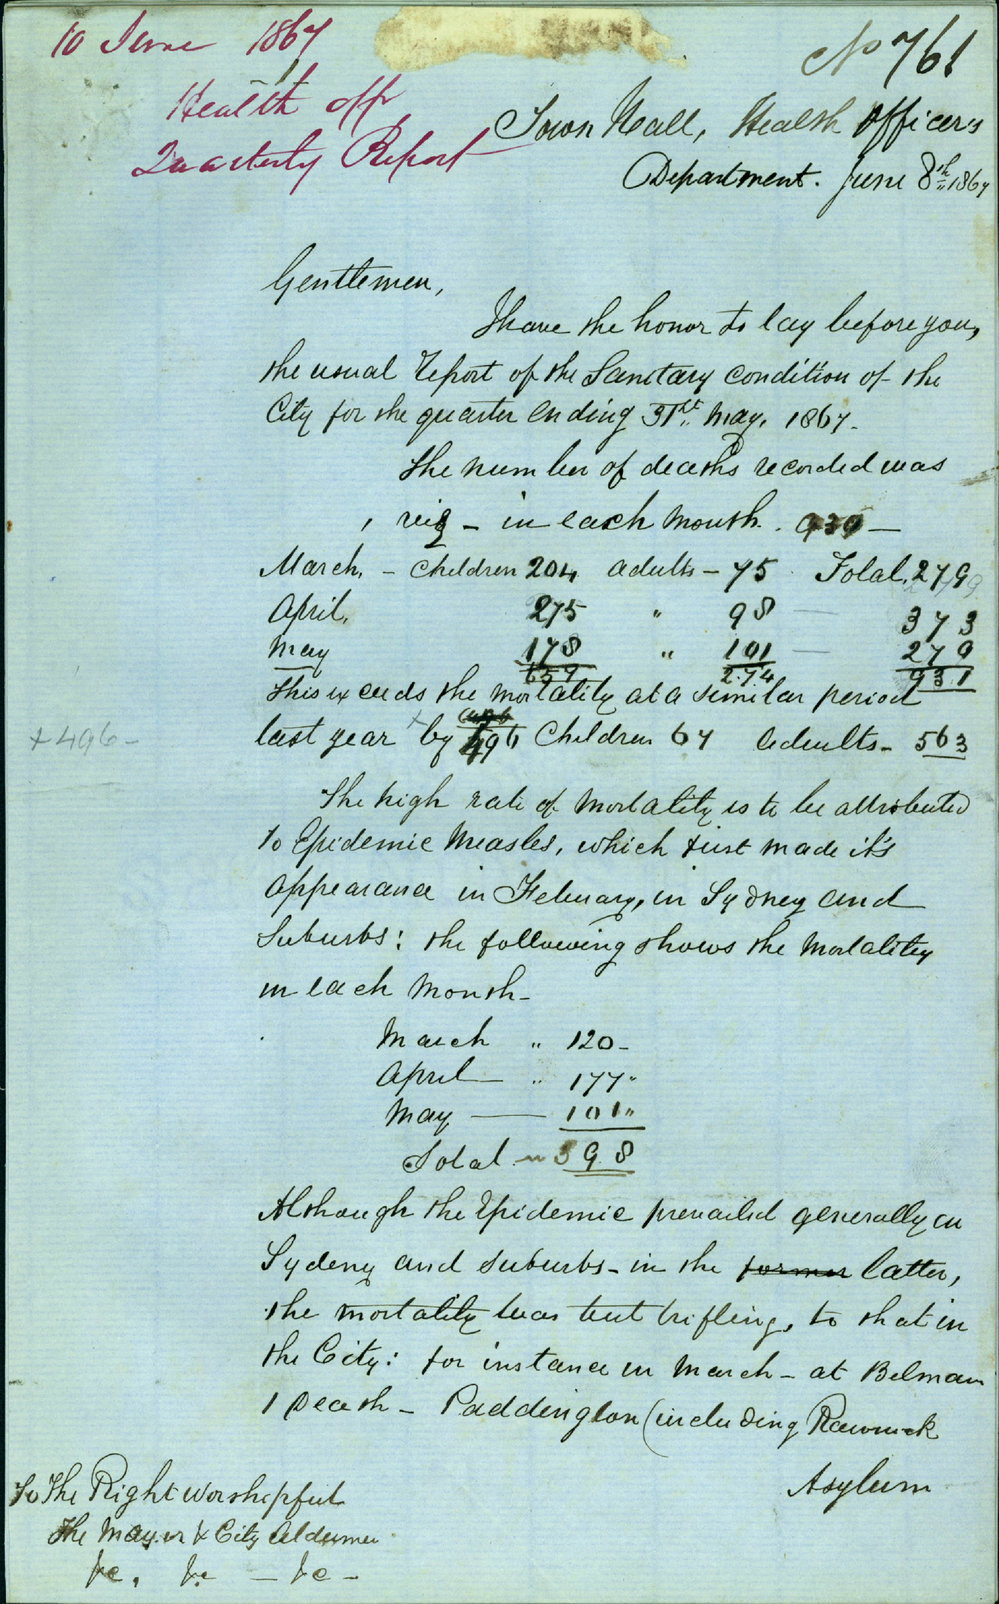 10 June 1867
No 761
Health offr
Quarterly Report
Town Hall, Health Officer's
Department. June 8th 1867
Gentlemen,
I have the honor to lay before you,
the usual report of the Sanitary condition of the
City for the quarter ending 31st May, 1867.
The number of deaths recorded was
, viz - in each month. 930 -
March, - Children 204 adults - 75 Total, 279
April, 275 " 98 — 373
May 178 " 101 — 279
657 274 931
This exceeds the mortality at a similar period
last year x by 496 Children 67 Adults - 563
x 496 -
The high rate of mortality is to be attributed
to Epidemic Measles, which first made it's
appearance in February, in Sydney and
Suburbs: the following shows the mortality
in each month -
March " 120 -
April — " 177 "
May — 101 "
Total - 398
Although the Epidemic prevailed generally in
Sydeny and suburbs - in the former latter,
the mortality was but trifling, to that in
the City: for instance in March - at Balmain
1 Death - Paddington (including Ranwick
Asylum
To The Right Worshipful
The Mayor & City Aldermen
&c, &c - &c -